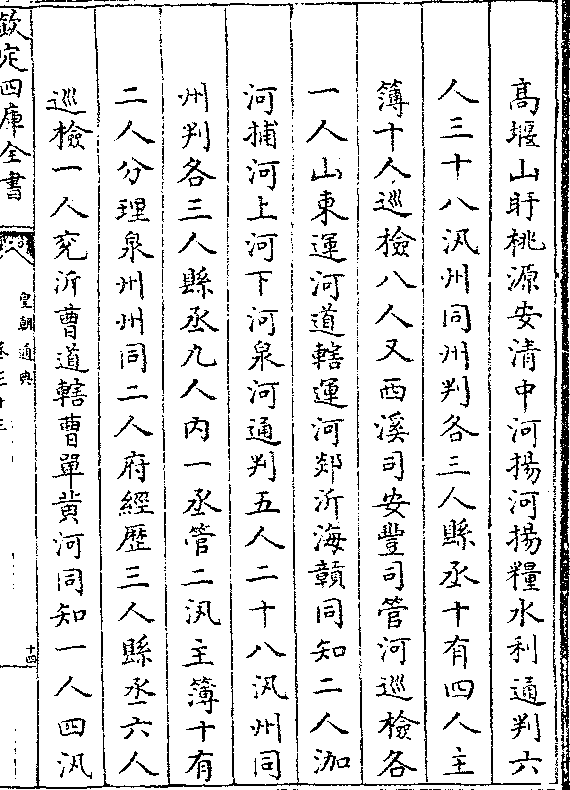 高堰山盱桃源安清中河揚河揚糧水利通判六
人三十八汛州同州判各三人縣丞十有四人主
簿十人巡檢八人又西溪司安豐司管河巡檢各
一人山東運河道轄運河郯沂海贛同知二人泇
河捕河上河下河泉河通判五人二十八汛州同
州判各三人縣丞九人內一丞管二汛主簿十有
二人分理泉州州同二人府經歷三人縣丞六人
巡檢一人兖沂曹道轄曹單黃河同知一人四汛
欽定四庫全書
皇朝通典
卷三十三
十四